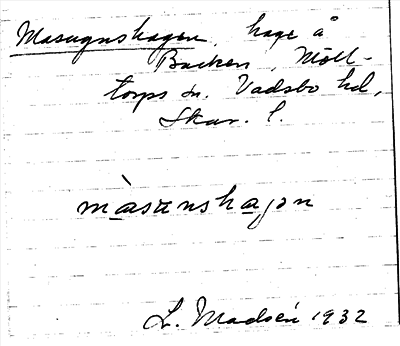 Masugnshagen, hage å
Backen, Möll-
torps sn. Vadsbo hd,
Skar. l.
màsanshaɡən
L. Madsén 1932